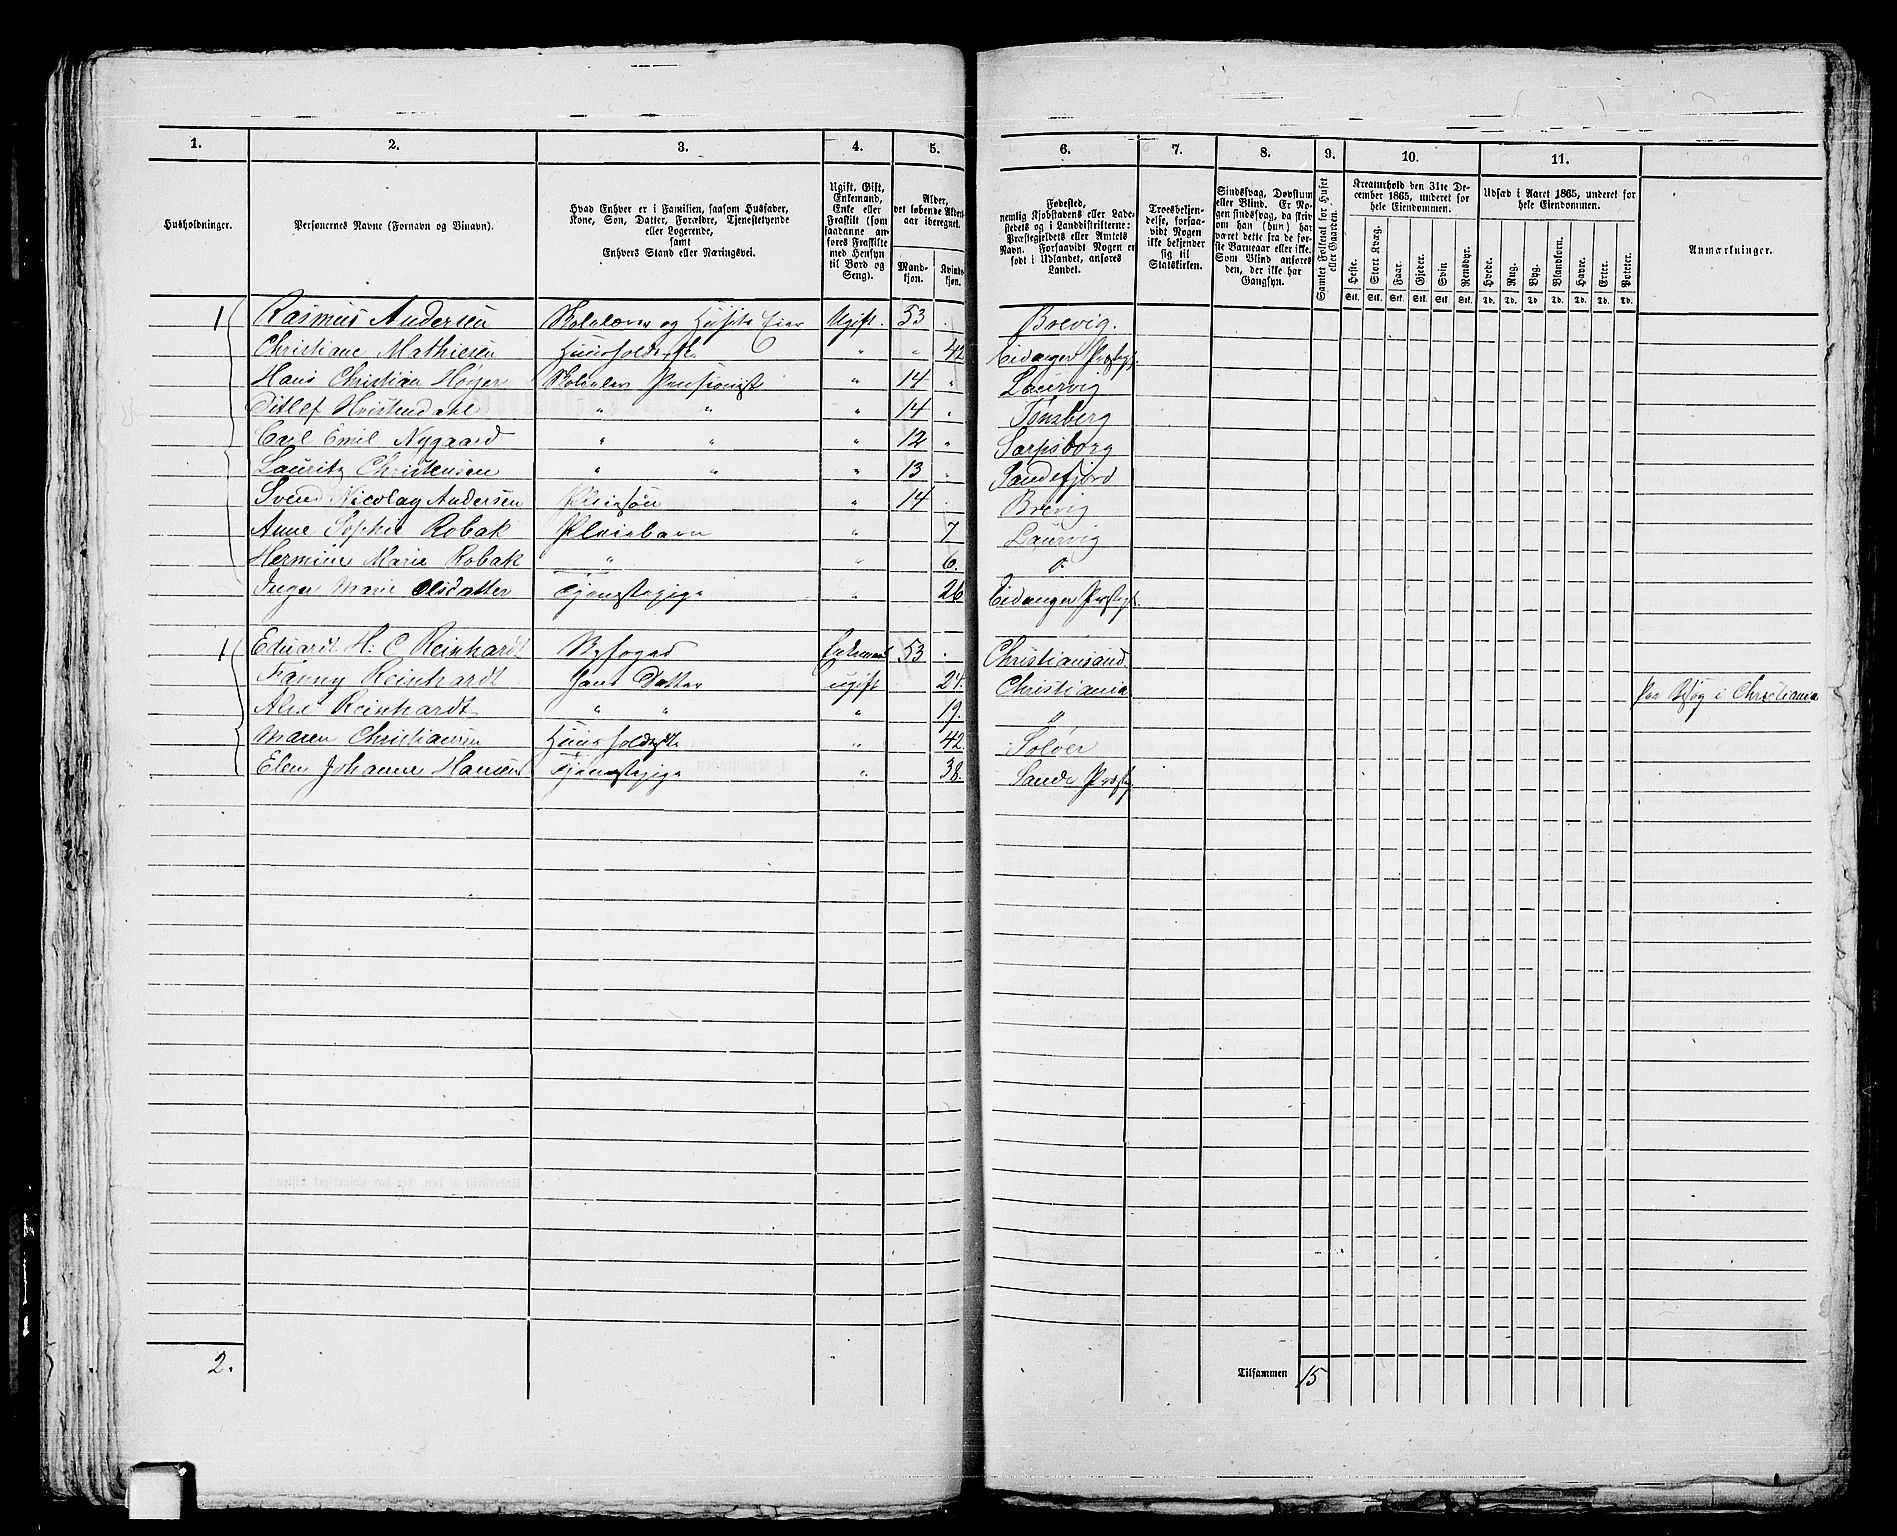 1. 2. 3. 4. 5. 6. 7. 8. 9. 10. 11.
Husholdninger.
Personernes Navne (Fornavn og Binavn).
Hvad Enhver er i Familien, saasom Husfader,
Kone, Son, Datter, Forældre, Tjenestetyende
eller Logerende,
samt
Enhvers Stand eller Næringsvei.
Ugift, Gift,
Enkemand,
Enke eller
Fraskilt (som
saadanne an-
føres Fraskilte
med Hensyn
til Bord og
Seng).
Alder,
det løbende Alders-
aar iberegnet.
Mand-
kjøn.
Kvinde-
kjøn.
Fødested,
nemlig Kjøbstadens eller Lade-
stedets og i Landdistrikterne:
Præstegjeldets eller Amtets
Navn. Forsaavidt Nogen er
født i Udlandet, anføres
Landet.
Troesbekjen-
delse, forsaa-
vidt Nogen
ikke bekjender
sig til
Statskirken.
Sindssvag, Døvstum
eller Blind. Er No-
gen sindssvag, da skriv
om han (hun) har
været dette fra de før-
ste Barneaar eller ikke.
Som Blind anføres
den, der ikke har
Gangsyn.
Samlet Folketal for Huset
eller Gaarden.
Kreaturhold den 31te De-
cember 1865, underet for
hele Eiendommen.
Heste. Stort Kvæg. Faar. Gjeder. Svin Rensdyr.
Stk. Stk. Stk. Stk. Stk. Stk.
Udsæd i Aaret 1865, underet for
hele Eiendommen.
Hvede. Rug. Byg. Blandkorn. Havre. Erter. Poteter.
Td. Td. Td. Td. Td. Td. Td.
Anmærkninger.
1 Rasmus Andersen Skolelærer og Husets Eier Ugift. 53 . Brevig.
Christiane Mathiesen Huusholderske " " 42 Eidanger Præstegj.
Hans Christian Høyer Skoleelev Pensionist " 14 " Laurvig
Ditlef Hvistendahl " " " 14 " Tønsberg
Carl Emil Nygaard " " " 12 " Sarpsborg
Lauritz Christensen " " " 13 . Sandefjord
Svend Nicolay Andersen Pleiesøn " 14 . Brevig
Anne Sophie Robak Pleiebarn " 7 Laurvig
Hermine Marie Robak " " 6. "
Inger Marie Olsdatter Tjenestepige " 26 Eidanger Præstegj.
1 Eduardt H. C Reinhardt Byfoged Enkemand 53 . Christiansand
Fanny Reinhardt hans Datter ugift 24. Christiania Paa Besøg i Christiania
Alex Reinhardt " " " 19. "
Maren Christiansen Huusholderske " 42. Soløer
Elen Johanne Hansen Tjenestepige " 38. Sande Præstegj.
2. Tilsammen 15